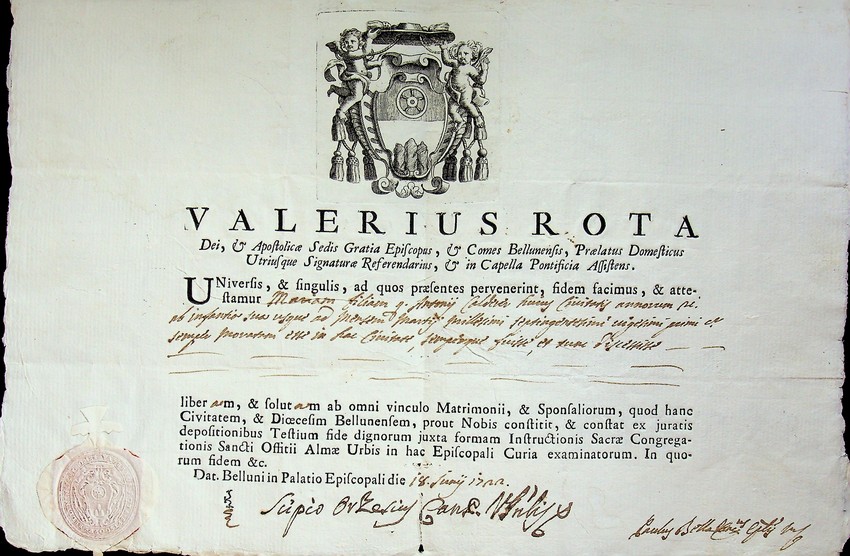 VALERIUS ROTA
Dei, & Apostolicæ Sedis Gratia Episcopus, & Comes Bellunensis, Prælatus Domesticus
Utriusque Signaturæ Referendarius, & in Capella Pontificia Assistens.
UNiversis, & singulis, ad quos præsentes pervenerint, fidem facimus, & atte-
stamur Mariam filiam q. Antonij huius Civitatis annorum
ab infantia sua usque ad Mensem Martij millesimi septingentesimi vigesimi primi et
semper moratam esse in hac Civitate, semperque fuisse, et tunc discessisse
liberam, & solutam ab omni vinculo Matrimonii, & Sponsaliorum, quod hanc
Civitatem, & Diœcesim Bellunensem, prout Nobis constitit, & constat ex juratis
depositionibus Testium fide dignorum juxta formam Instructionis Sacræ Congrega-
tionis Sancti Offitii Almæ Urbis in hac Episcopali Curia examinatorum. In quo-
rum fidem &c.
Dat. Belluni in Palatio Episcopali die 18. Junij 1722.
Scipio Orzesius Canc.
Paulus